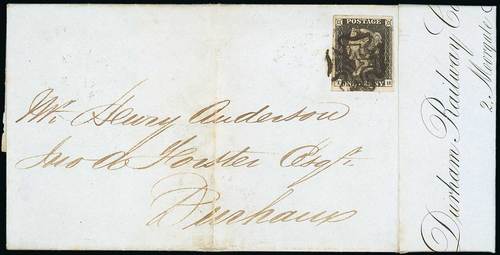 POSTAGE
ONE PENNY
Mr. Henry Anderson
Jno. A. Forster Esqr.
Durham
Durham Railway Co
2, Moorgate